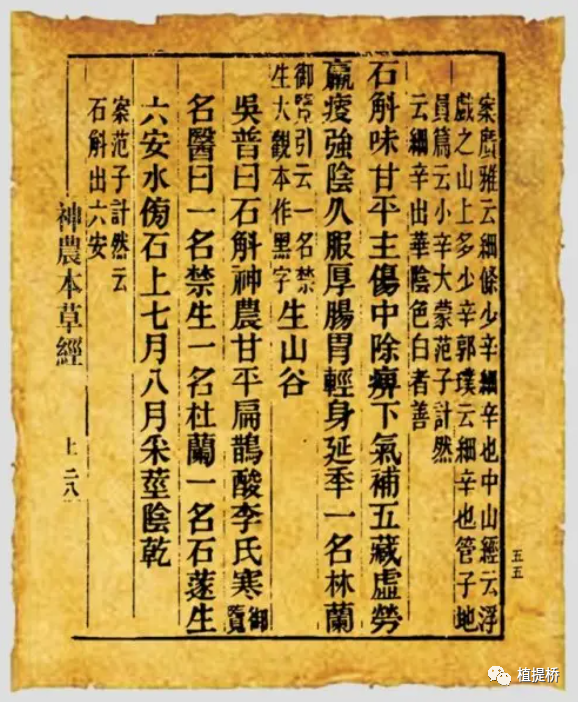 五五
案廣雅云細條少辛細辛也中山經云浮
戲之山上多少辛郭璞云細辛也管子地
員篇云小辛大蒙范子計然
云細辛出華陰色白者善
石斛味甘平主傷中除痹下氣補五藏虛勞
羸瘦強陰久服厚腸胃輕身延秊一名林蘭
御覽引云一名禁
生大觀本作黑字生山谷
吳普曰石斛神農甘平扁鵲酸李氏寒御覽
名醫曰一名禁生一名杜蘭一名石蓫生
六安水傍石上七月八月采莖陰乾
案范子計然云
石斛出六安
神農本草經 上 二八
植提桥